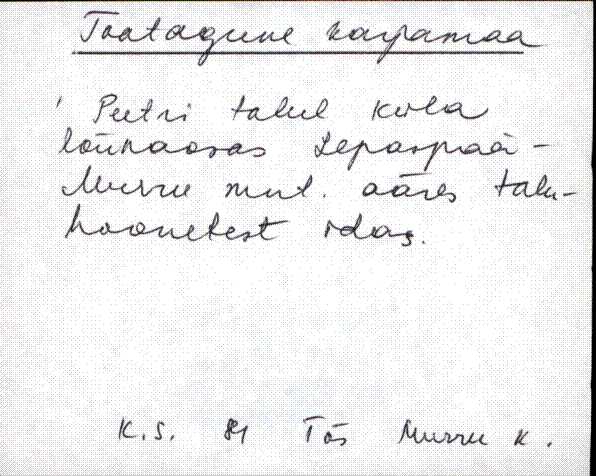 Toatagune karjamaa
' Peetri talul küla
lõunaosas Lepaspää-
Murru mnt. ääres talu-
hoonetest idas.
K.S. 84 Tõs Murru k.